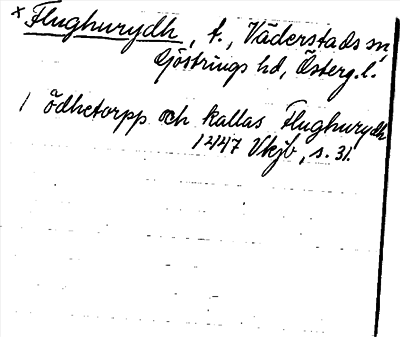 × Flughurydh, t., Väderstads sn,
Göstrings hd, Österg. l.
1 ödhetorpp och kallas Flughurydh
1447 Vkjb, s. 31.